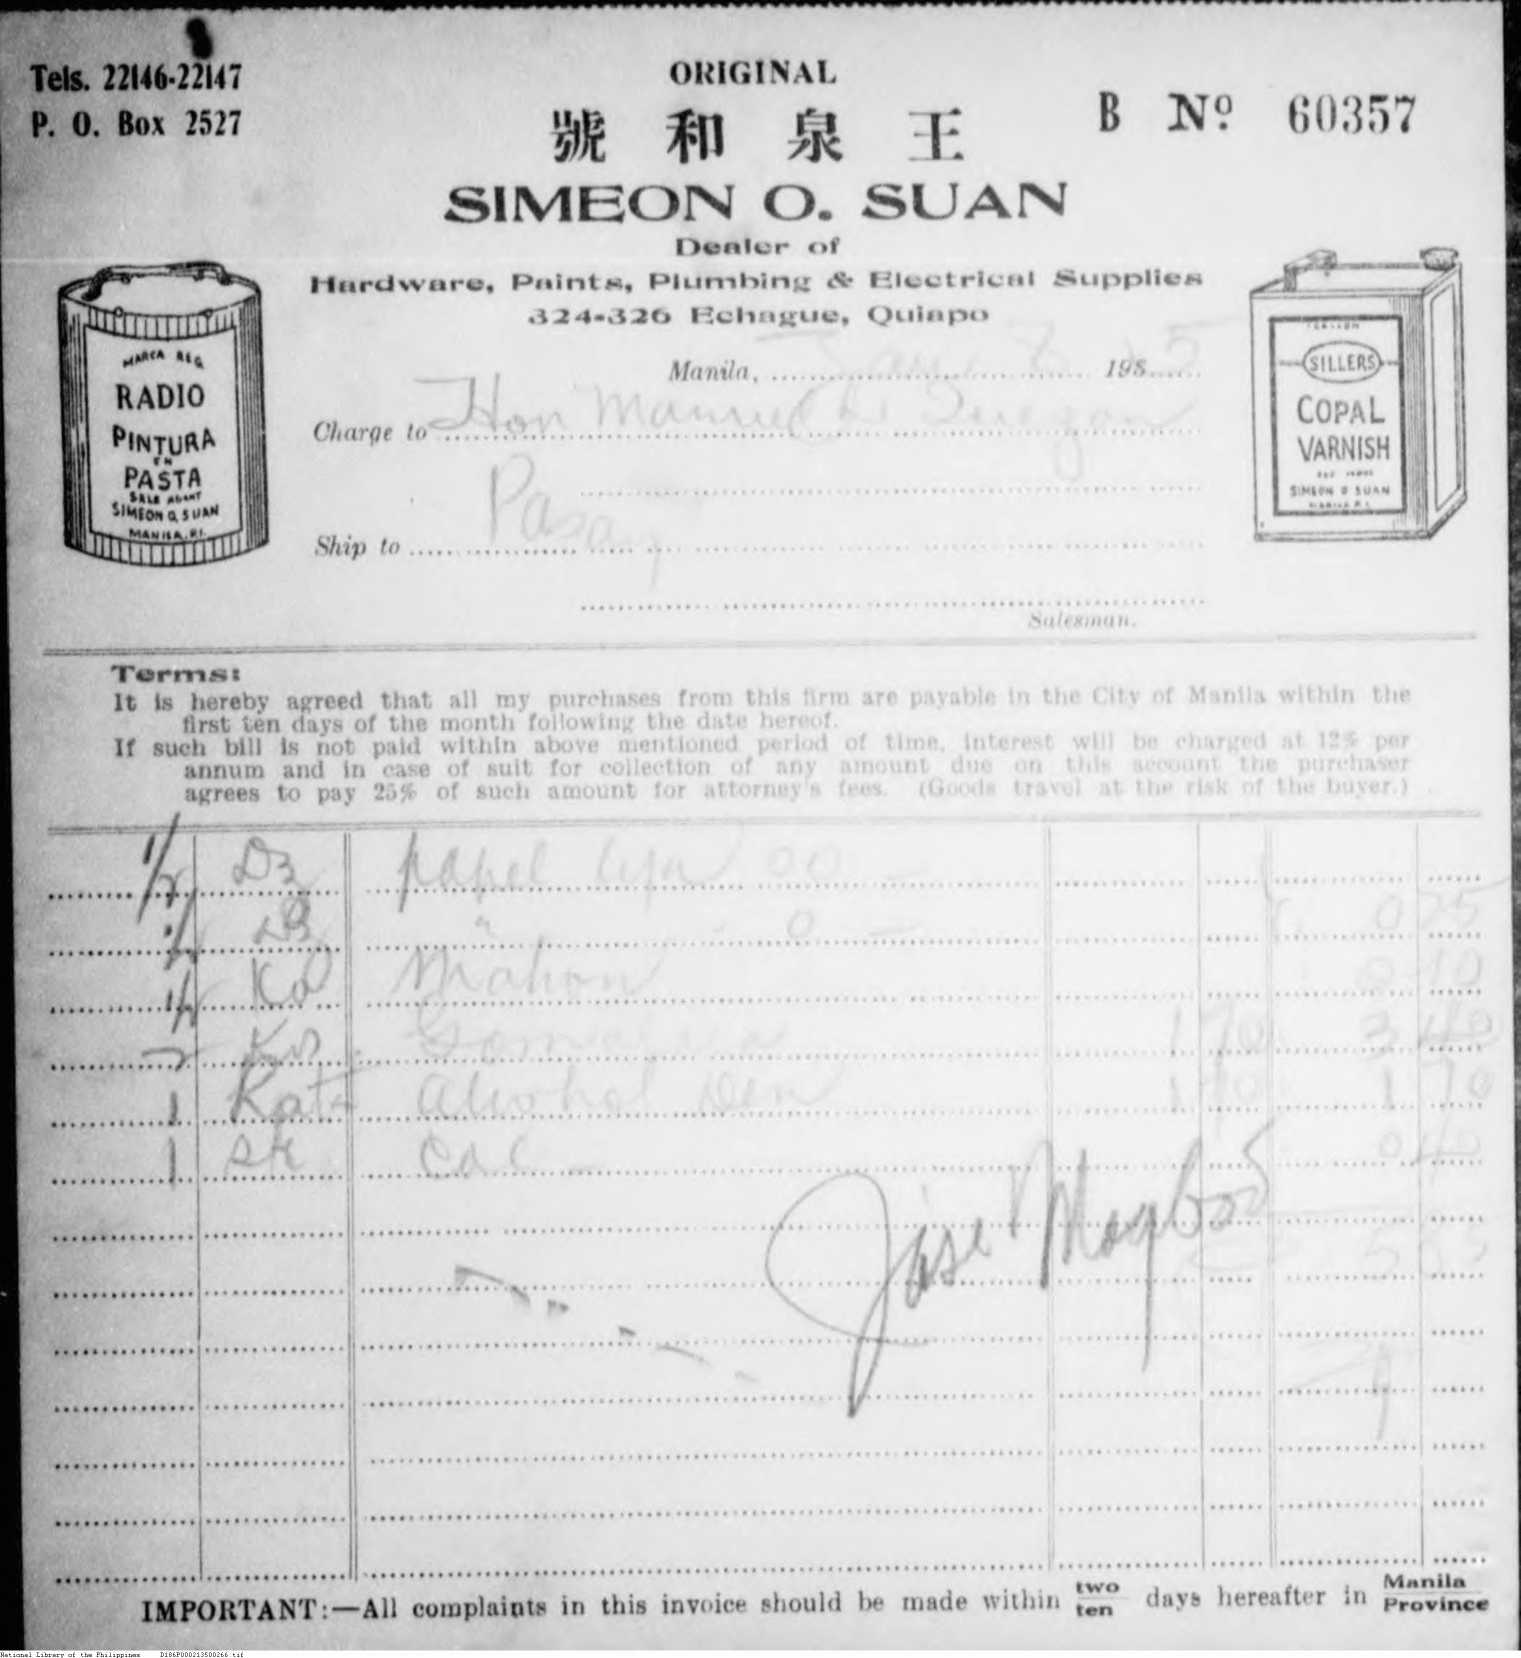 Tels. 22146-22147
P. O. Box 2527
ORIGINAL
B Nº 60357
號和泉王
SIMEON O. SUAN
Dealer of
Hardware, Paints, Plumbing & Electrical Supplies
324-326 Echague, Quiapo
MARCA REG
RADIO
PINTURA
EN
PASTA
SALE AGENT
SIMEON O. SUAN
MANILA, P.I.
SILLERS
COPAL
VARNISH
SIMEON O SUAN
MANILA P.I.
Manila, 8 193 5
Charge to Hon Manuel L. Quezon
Pasay
Ship to
Salesman.
Terms:
It is hereby agreed that all my purchases from this firm are payable in the City of Manila within the
first ten days of the month following the date hereof.
If such bill is not paid within above mentioned period of time, interest will be charged at 12% per
annum and in case of suit for collection of any amount due on this account the purchaser
agrees to pay 25% of such amount for attorney's fees. (Goods travel at the risk of the buyer.)
1/2 Dz papel lija 00 —
Dz " 0 —
1/2 Ko
Ks 1 70 3 40
1 Alcohol Den 1 70 1 70
1 0 40
Jose
IMPORTANT:—All complaints in this invoice should be made within two ten days hereafter in Manila Province
National Library of the Philippines D186P000213500266.tif